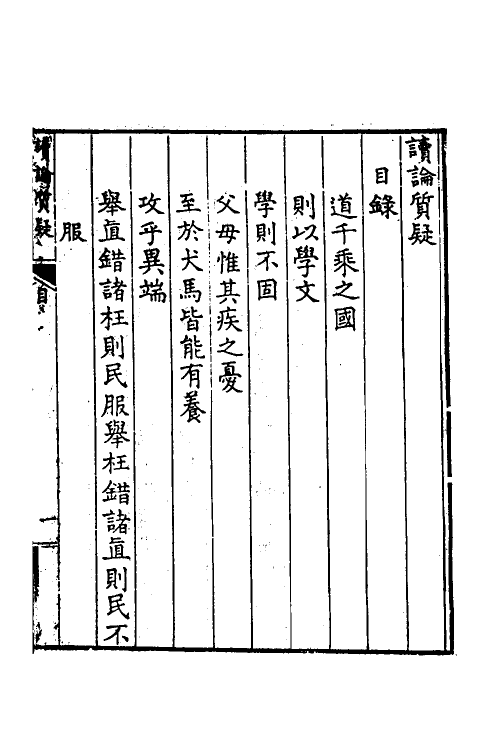 讀論質疑
目錄
道千乘之國
則以學文
學則不固
父母惟其疾之憂
至於犬馬皆能有養
攻乎異端
舉直錯諸枉則民服舉枉錯諸直則民不
服
讀論質疑
目
一